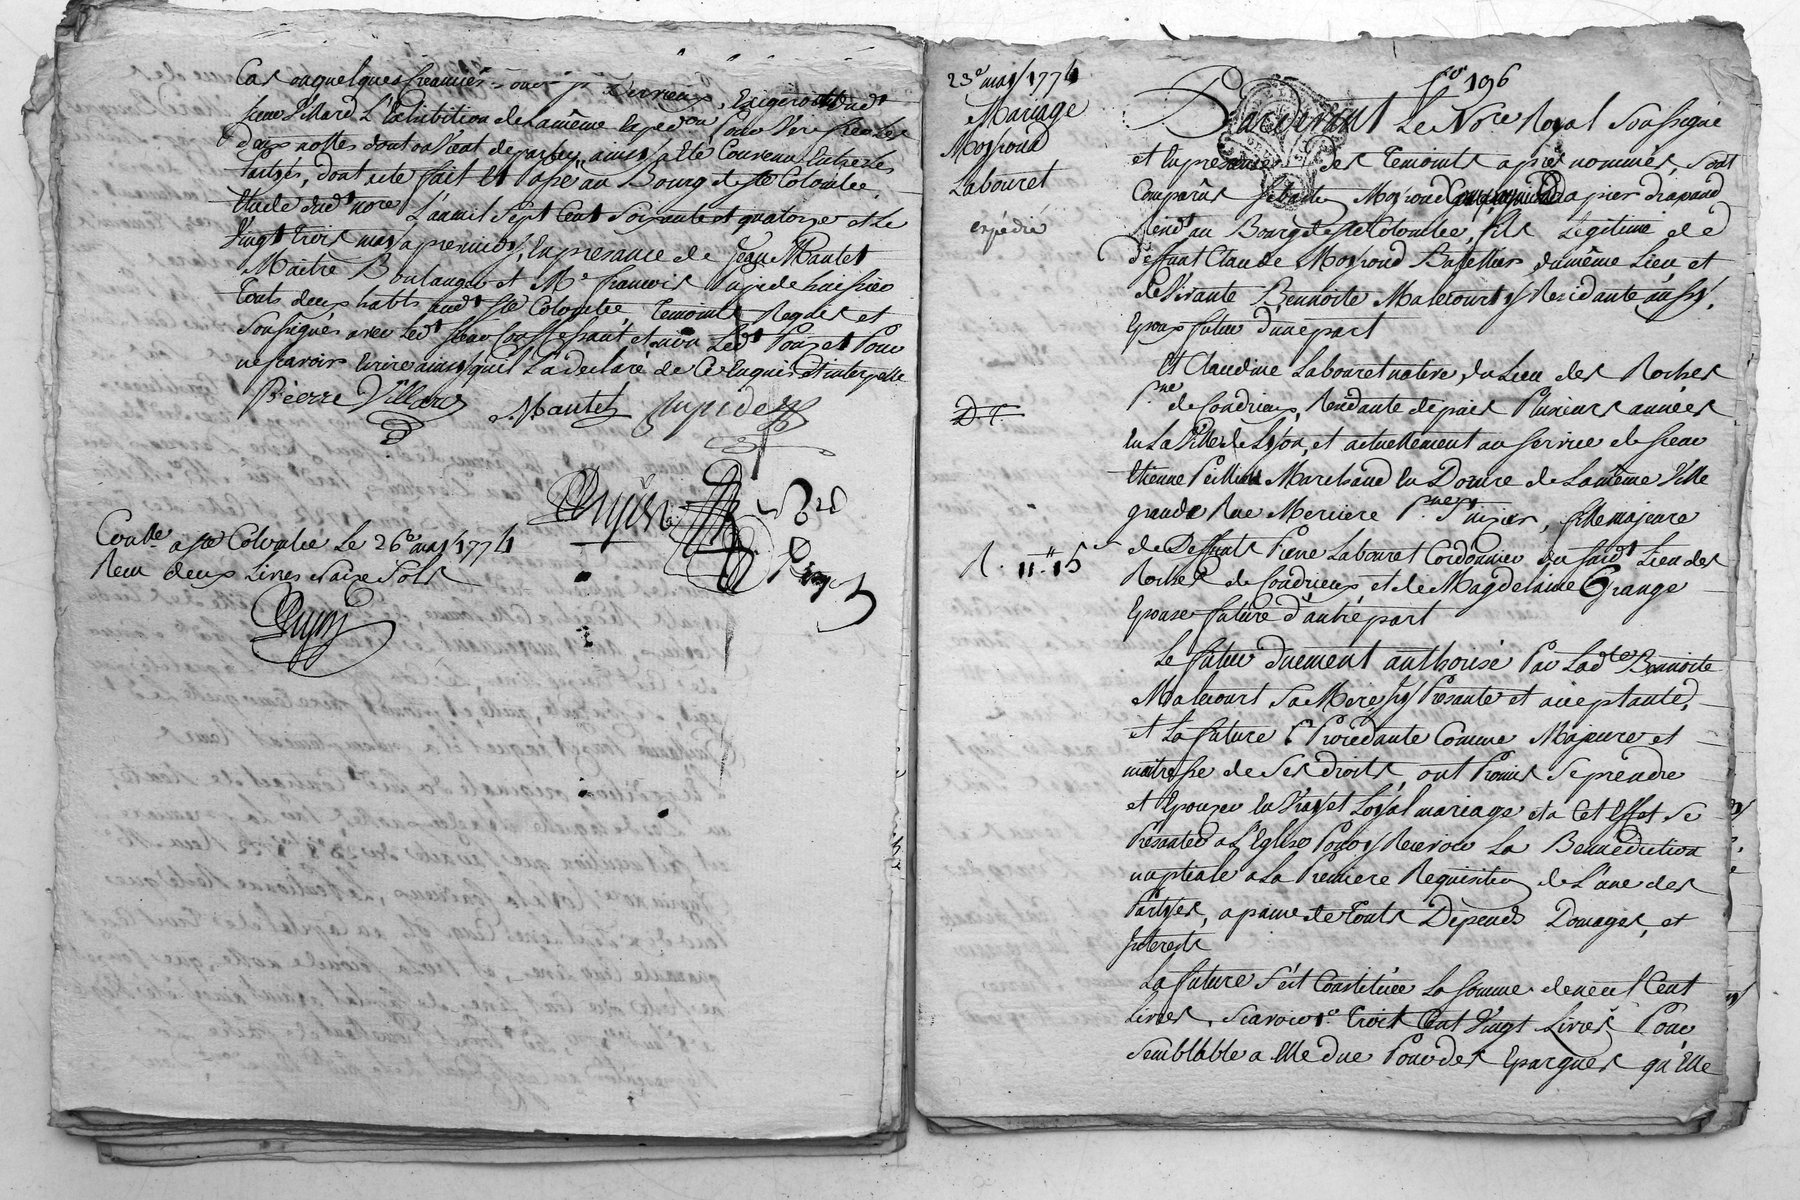 Cas ou quelques creanciers
sieur Villard L'Exhibition de la même
deux nottes dont on vient de parler, ainsy a été Convenu Entre les
Partyes, dont acte fait et Passé au Bourg de Ste Colombe
Etude dudt nore L'an mil Sept Cent Soixante et quatorze et le
Vingt trois may apres midy, En presance de Jean Mantet
Maitre Boulanger et Me francois huissier
touts deux habts audt Ste Colombe, temoins Requis et
Soussignés avec ledt sieur et non Ledt Pour
ne scavoir Ecrire ainsy quil L'a declaré de Ce Enquis Et interpellé
Pierre Villard Mantet
Conlle a Ste Colombe Le 26e may 1774
Receu deux Livres seize Sols
23e may 1774
Mariage
Labouret
expédié
R. 11 " 15 s
fo 196
Pardevant Le Nore Royal Soussigné
et En presance des temoints apres nommés, Sont
Comparus
Rendt au Bourg de Ste Colombe, fils Legitime de
deffunt Claude Battellier du même Lieu et
de Vivante Bennoite Malecourt y Residante aussy,
Epoux futur d'une part
Et Claudine Labouret native du Lieu des Roches
Pnes de Condrieux, Residante depuis Plusieurs années
En La Ville de Lyon, et actuellement au service de sieur
Etienne Marchand En Dorure de La même Ville
grande Rue Merciere fille majeure
de Deffunts Pierre Labouret Cordonnier du susdt Lieu des
Roches de Condrieux, et de Magdelaine Grange
Epouse future d'autre part
Le futur duement authorisé Par Ladte Bennoite
Malecourt Sa Mere icy Presante et acceptante,
et La future Procedante Comme Majeure et
maitresse de Ses droits, ont Promis Se prendre
et Epouser En Vray et Loyal mariage et a Cet Effet Se
Presanter a L'Eglise Pour y Recevoir La Bennediction
nuptiale a La Premiere Requisition de L'une des
Partyes, a paine de touts Depends Domages, et
Interests
La future S'est Constituée La somme de neuf Cent
Livres, Scavoir trois Cent Vingt Livres Pour
Semblable a Elle due Pour des Epargnes qu'Elle